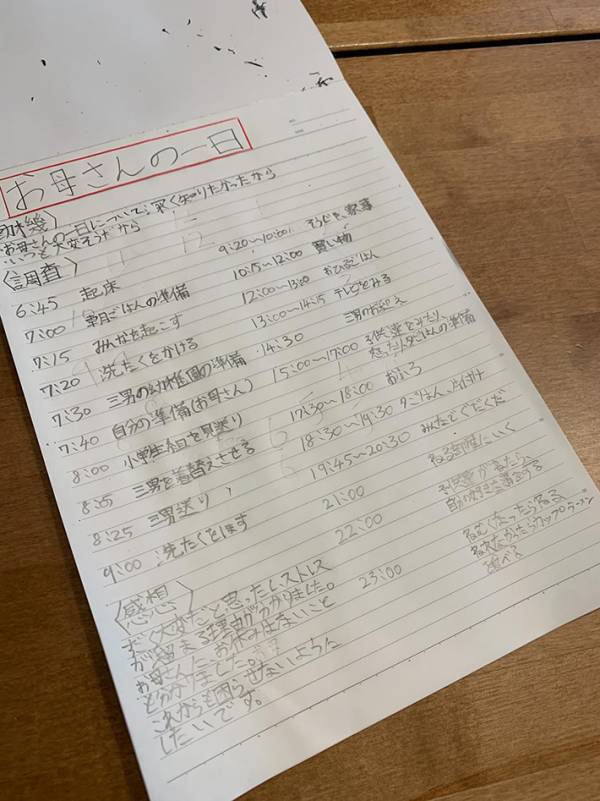 お母さんの一日
〈動機〉
お母さんの一日について深く知りたかったから
いつも大変そうだから
〈調査〉
6:45 起床
7:00 朝ごはんの準備
7:15 みんなを起こす
7:20 洗たくをかける
7:30 三男の幼稚園の準備
7:40 自分の準備(お母さん)
8:00 小学生組を見送り
8:05 三男を着替えさせる
8:25 三男送り
9:00 洗たくをほす
9:20〜10:00 そうじを、家事
10:15〜12:00 買い物
12:00〜13:00 お昼ごはん
13:00〜14:15 テレビをみる
14:30 三男のお迎え
15:00〜17:00 子供達をみたり、
怒ったり夕ごはんの準備
17:30〜18:00 おふろ
18:30〜19:30 夕ごはん、片付け
19:45〜20:30 みんなでぐだぐだ
21:00 ねる部屋にいく
22:00 子供達が寝たら
自分の好きな事をする
23:00 ねむくなったら寝る
おなかがへったらカップラーメン
食べる
〈感想〉
すごく大変だと思ったしストレス
が溜まる理由が分かりました。
お母さんに、お休みはないこと
が分かりました。
これからも困らせないように
したいです。